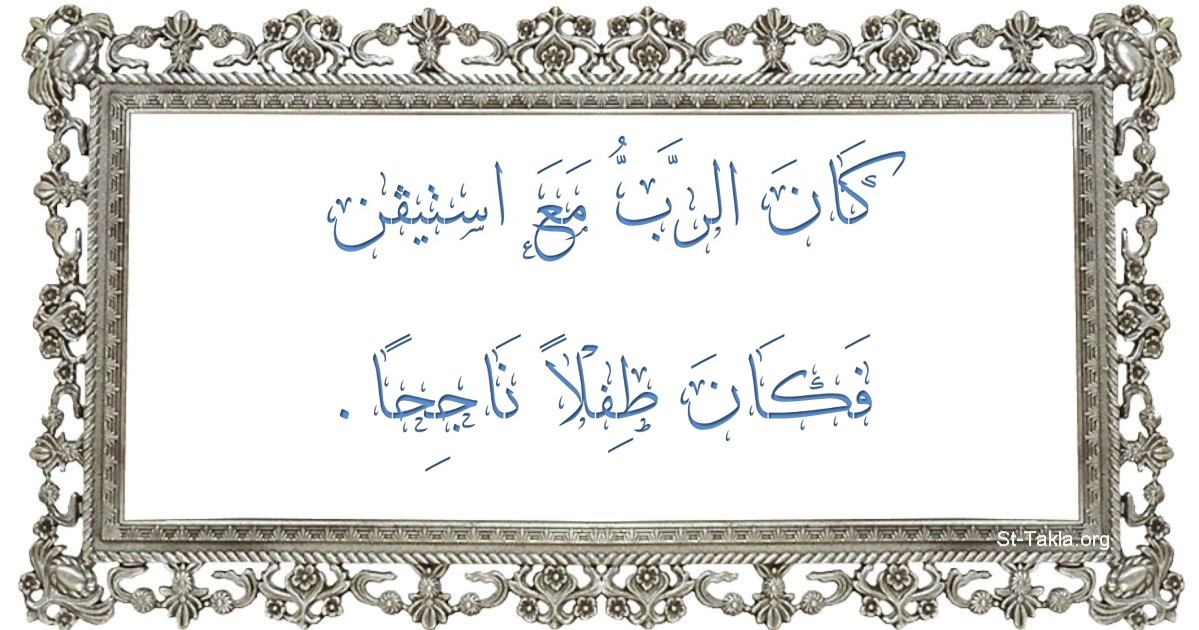 كَانَ الرَّبُّ مَعَ استيڤن
فَكَانَ طِفْلاً نَاجِحًا .
St-Takla.org